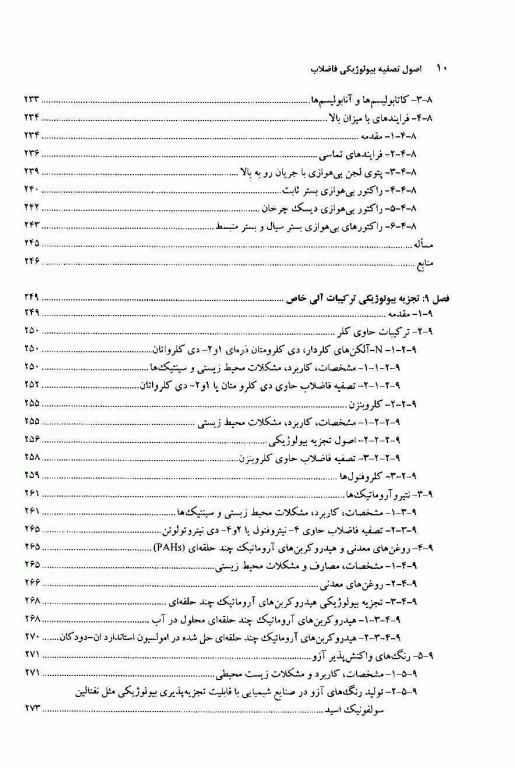 ۱۰ اصول تصفیه بیولوژیکی فاضلاب
۸-۳- کاتابولیسم‌ها و آنابولیسم‌ها ۲۳۳
۸-۴- فرایندهای با میزان بالا ۲۳۴
۸-۴-۱- مقدمه ۲۳۴
۸-۴-۲- فرایندهای تماسی ۲۳۶
۸-۴-۳- پتوی لجن بی‌هوازی با جریان رو به بالا ۲۳۹
۸-۴-۴- راکتور بی‌هوازی بستر ثابت ۲۴۰
۸-۴-۵- راکتور بی‌هوازی دیسک چرخان ۲۴۲
۸-۴-۶- راکتورهای بی‌هوازی بستر سیال و بستر منبسط ۲۴۳
مسأله ۲۴۵
منابع ۲۴۶
فصل ۹: تجزیه بیولوژیکی ترکیبات آلی خاص ۲۴۹
۹-۱- مقدمه ۲۴۹
۹-۲- ترکیبات حاوی کلر ۲۵۰
۹-۲-۱- N-آلکن‌های کلردار، دی کلرومتان ذره‌ای ۱و۲- دی کلرواتان ۲۵۰
۹-۲-۱-۱- مشخصات، کاربرد، مشکلات محیط زیستی و سینتیک‌ها ۲۵۰
۹-۲-۱-۲- تصفیه فاضلاب حاوی دی کلرو متان یا ۱و۲- دی کلرواتان ۲۵۲
۹-۲-۲- کلروبنزن ۲۵۵
۹-۲-۲-۱- مشخصات، کاربرد، مشکلات محیط زیستی ۲۵۵
۹-۲-۲-۲- اصول تجزیه بیولوژیکی ۲۵۶
۹-۲-۲-۳- تصفیه فاضلاب حاوی کلروبنزن ۲۵۸
۹-۲-۳- کلروفنول‌ها ۲۵۹
۹-۳- نیتروآروماتیک‌ها ۲۶۱
۹-۳-۱- مشخصات، کاربرد، مشکلات محیط زیستی و سینتیک‌ها ۲۶۱
۹-۳-۲- تصفیه فاضلاب حاوی ۴- نیتروفنول یا ۲و۴- دی نیتروتولوئن ۲۶۵
۹-۴- روغن‌های معدنی و هیدروکربن‌های آروماتیک چند حلقه‌ای (PAHs) ۲۶۵
۹-۴-۱- مشخصات، مصارف و مشکلات محیط زیستی ۲۶۵
۹-۴-۲- روغن‌های معدنی ۲۶۶
۹-۴-۳- تجزیه بیولوژیکی هیدروکربن‌های آروماتیک چند حلقه‌ای ۲۶۸
۹-۴-۳-۱- هیدروکربن‌های آروماتیک چند حلقه‌ای محلول در آب ۲۶۸
۹-۴-۳-۲- هیدروکربن‌های آروماتیک چند حلقه‌ای حل شده در امولسیون استاندارد ان-دودکان ۲۷۰
۹-۵- رنگ‌های واکنش‌پذیر آزو ۲۷۱
۹-۵-۱- مشخصات، کاربرد و مشکلات زیست محیطی ۲۷۱
۹-۵-۲- تولید رنگ‌های آزو در صنایع شیمیایی با قابلیت تجزیه‌پذیری بیولوژیکی مثل نفتالین
سولفونیک اسید ۲۷۳